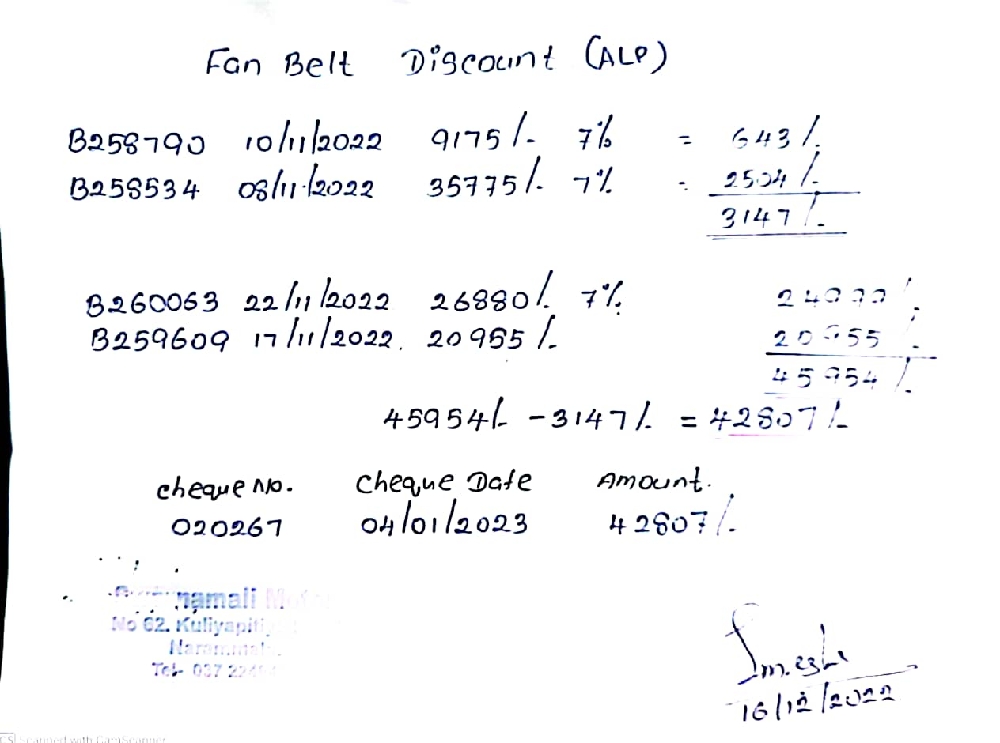 Fan Belt Discount (ALP)
B258790 10/11/2022 9175/- 7% = 643/-
B258534 08/11/2022 35775/- 7% = 2504/-
3147/-
B260063 22/11/2022 26880/- 7% 24999/-
B259609 17/11/2022. 20955/- 20955/-
45954/-
45954/- - 3147/- = 42807/-
cheque No. Cheque Date Amount.
020267 04/01/2023 42807/-
No 62, Kuliyapiti
Tel- 037
16/12/2022
CS Scanned with CamScanner